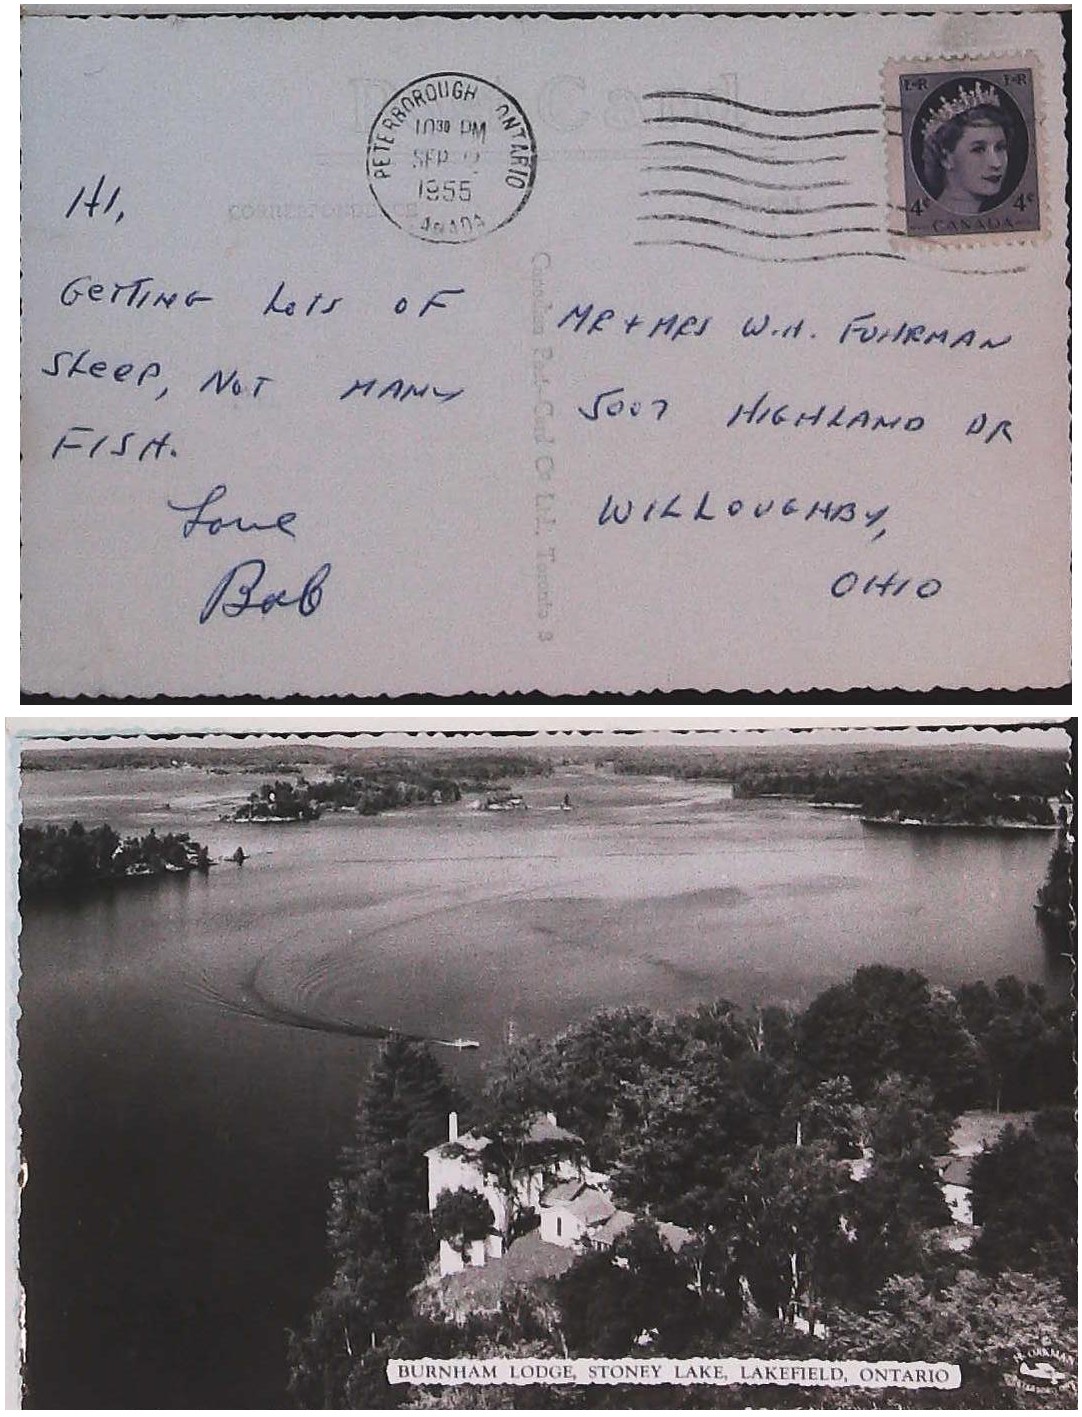 PETERBOROUGH ONTARIO
10 30 PM
SEP 2
1955
CANADA
E R E R
4¢ 4¢
CANADA
CORRESPONDENCE
HI,
GETTING LOTS OF
SLEEP, NOT MANY
FISH.
Love
Bob
Canadian Post Card Co Ltd. Toronto 3
MR + MRS W.H. FUHRMAN
5007 HIGHLAND DR
WILLOUGHBY,
OHIO
BURNHAM LODGE, STONEY LAKE, LAKEFIELD, ONTARIO